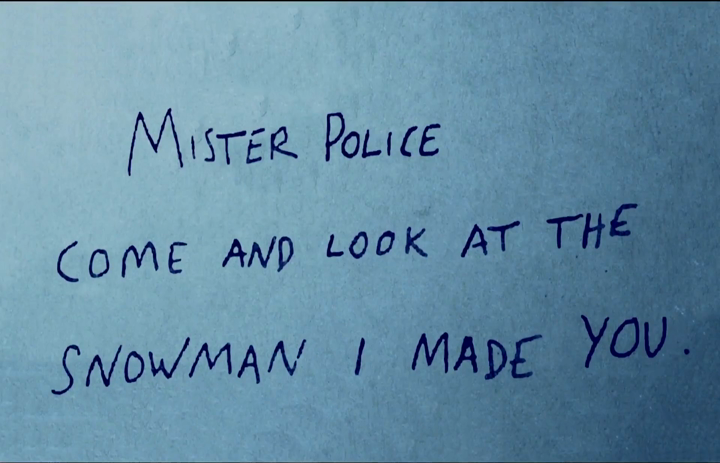 MISTER POLICE
COME AND LOOK AT THE
SNOWMAN I MADE YOU.